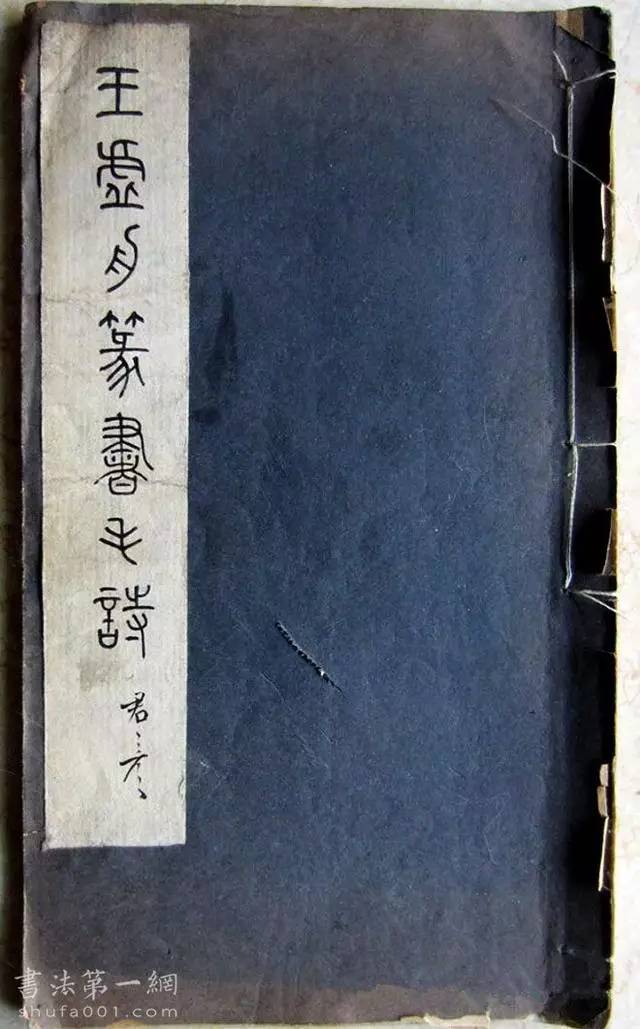 王虛舟篆書毛詩
君
書法第一網
shufa001.com